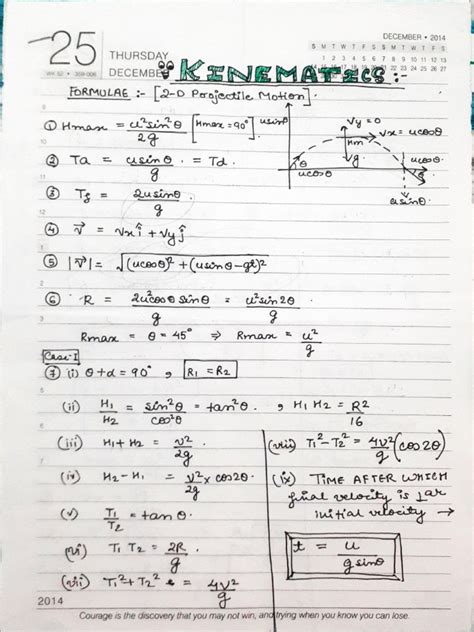 25
WK 52 • 359-006
THURSDAY
DECEMBER
DECEMBER • 2014
S M T W T F S S M T W T F S
KINEMATICS :-
FORMULAE :- [2-D Projectile Motion].
① Hmax = u²sin²θ / 2g [Hmax = 90°]
usinθ
Vy = 0
Vx = ucosθ
Hm
Vg
θ
ucosθ
ucosθ
θ
usinθ
② Ta = usinθ / g = Td.
③ Tf = 2usinθ / g
④ v⃗ = vxî + vyĵ
⑤ |v⃗| = √(ucosθ)² + (usinθ - gt)²
⑥ R = 2u²cosθ sinθ / g = u²sin2θ / g
Rmax = θ = 45° ⇒ Rmax = u² / g
Case-I
⑦ (i) θ + α = 90° , R₁ = R₂
(ii) H₁ / H₂ = sin²θ / cos²θ = tan²θ , H₁ H₂ = R² / 16
(iii) H₁ + H₂ = v² / 2g
(iv) H₂ - H₁ = v² / 2g × cos2θ
(v) T₁ / T₂ = tanθ.
(vi) T₁ T₂ = 2R / g
(vii) T₁² + T₂² = 4v² / g
(viii) T₁² - T₂² = 4v² / g (cos2θ)
(ix) TIME AFTER WHICH
final velocity is ⊥ar
initial velocity →
t = u / gsinθ
2014
Courage is the discovery that you may not win, and trying when you know you can lose.